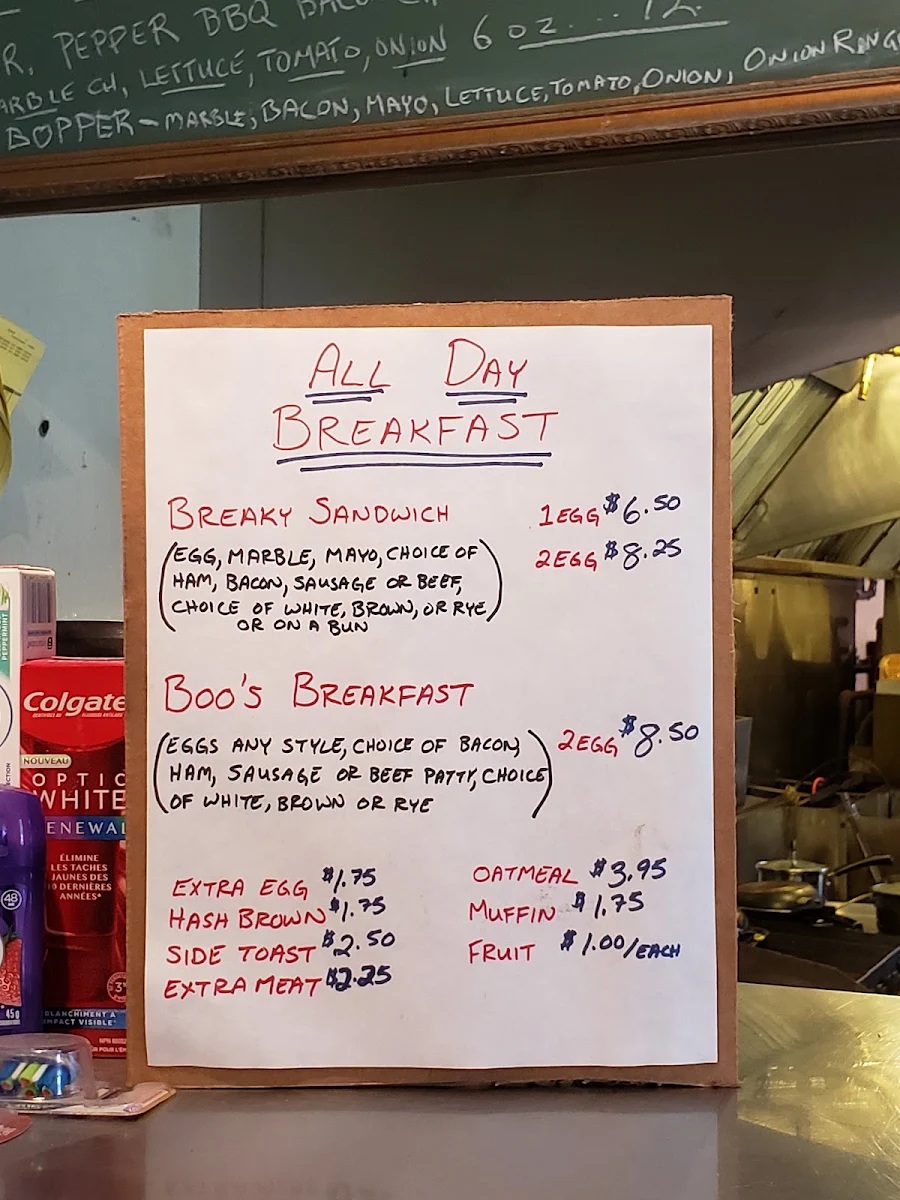 R, PEPPER BBQ
MARBLE CH, LETTUCE, TOMATO, ONION 6 OZ.... 12.
BOPPER - MARBLE, BACON, MAYO, LETTUCE, TOMATO, ONION, ONION RING
ALL DAY
BREAKFAST
BREAKY SANDWICH 1 EGG $6.50
(EGG, MARBLE, MAYO, CHOICE OF 2 EGG $8.25
HAM, BACON, SAUSAGE OR BEEF,
CHOICE OF WHITE, BROWN, OR RYE
OR ON A BUN)
BOO'S BREAKFAST
(EGGS ANY STYLE, CHOICE OF BACON, 2 EGG $8.50
HAM, SAUSAGE OR BEEF PATTY, CHOICE
OF WHITE, BROWN OR RYE)
EXTRA EGG $1.75
HASH BROWN $1.75
SIDE TOAST $2.50
EXTRA MEAT $2.25
OATMEAL $3.95
MUFFIN $1.75
FRUIT $1.00/EACH
PEPPERMINT
Colgate
NOUVEAU
OPTIC
WHITE
RENEWAL
ÉLIMINE
LES TACHES
JAUNES DES
10 DERNIÈRES
ANNÉES*
BLANCHIMENT À
IMPACT VISIBLE*
48
45g